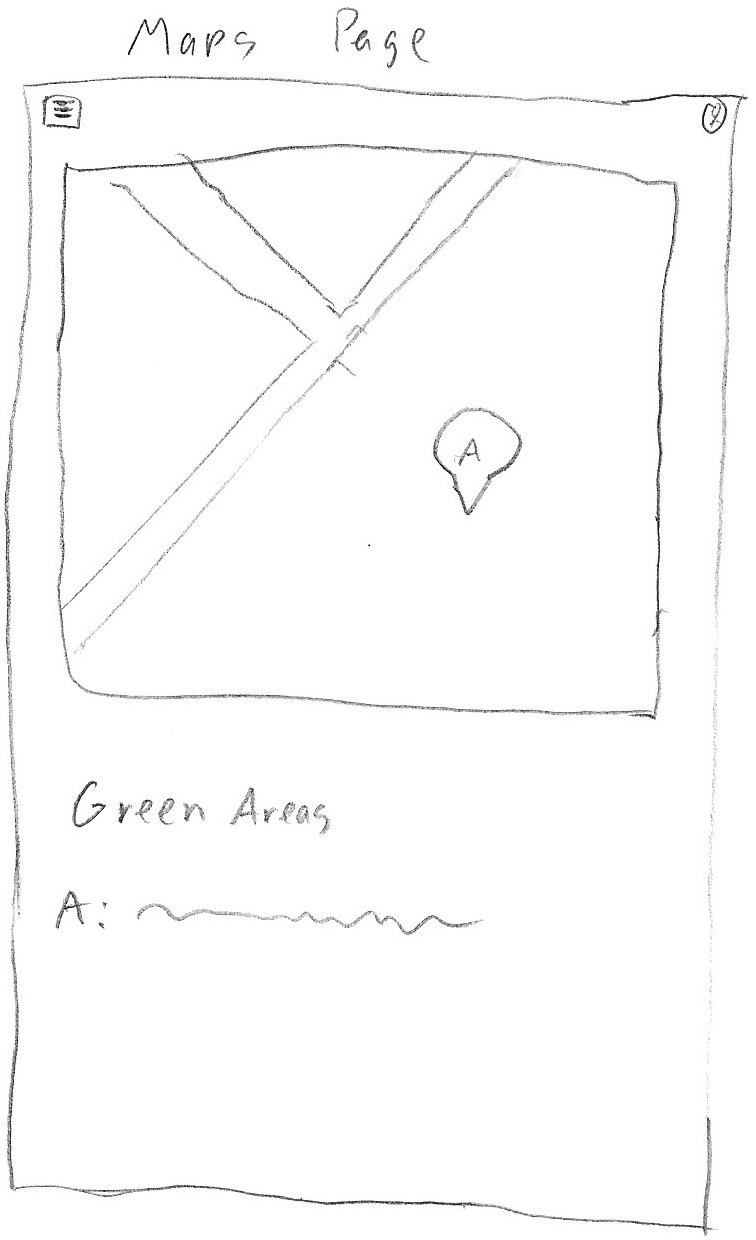 Maps Page
A
Green Areas
A: